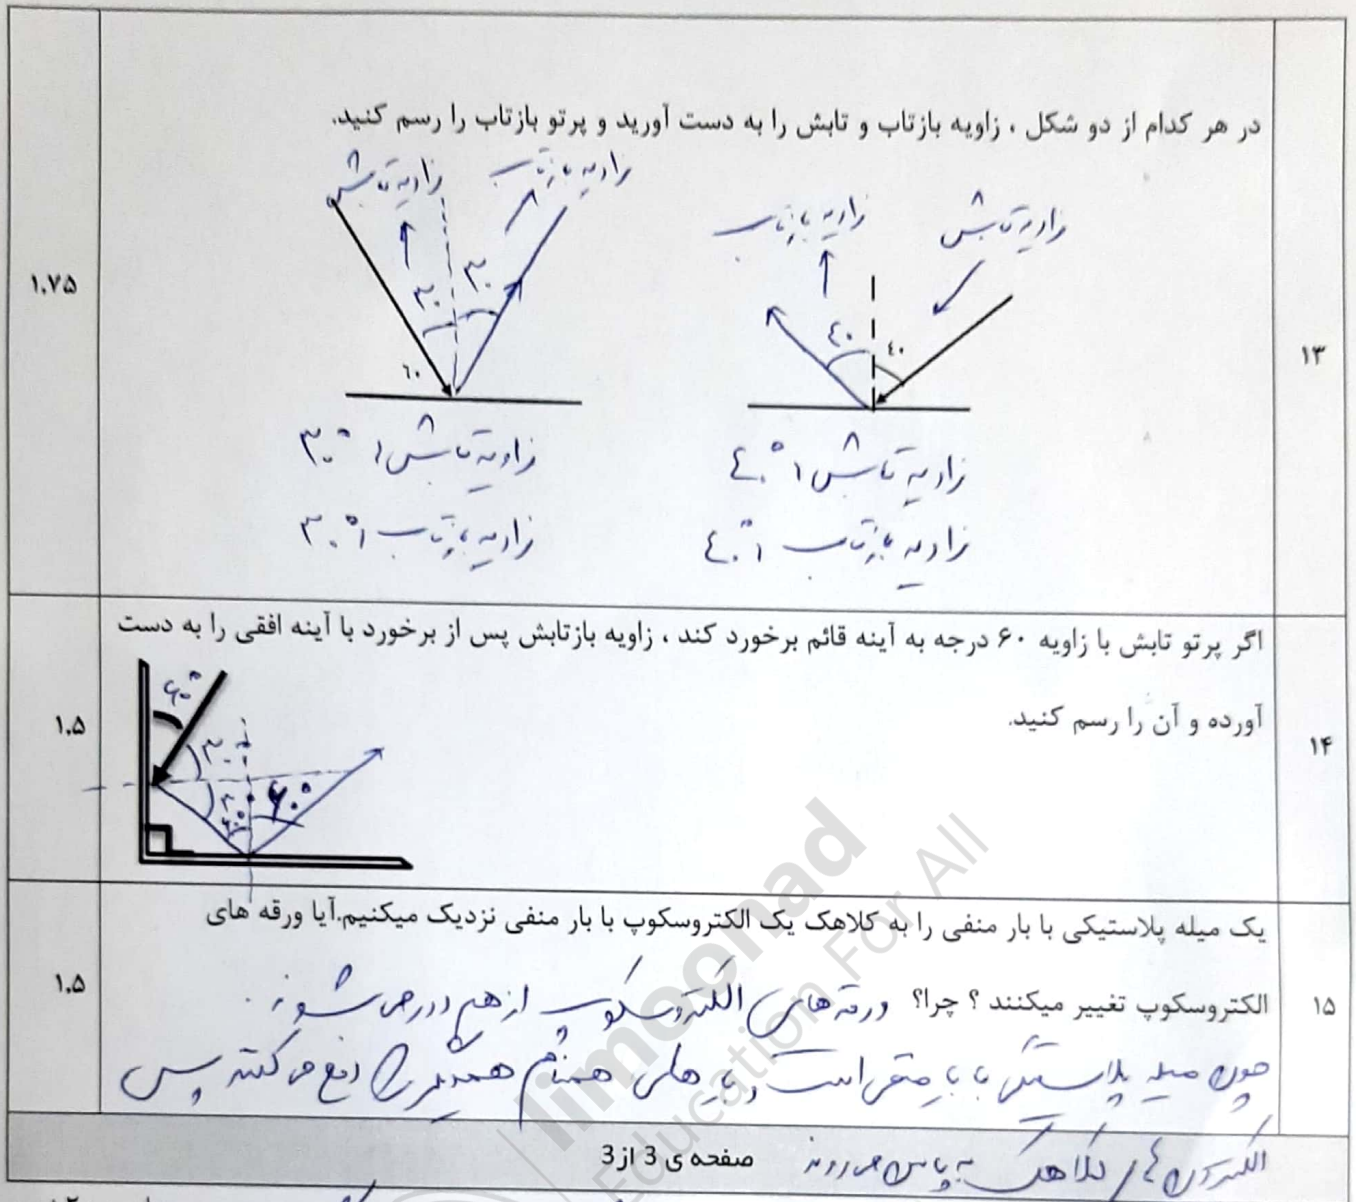 در هر کدام از دو شکل ، زاویه بازتاب و تابش را به دست آورید و پرتو بازتاب را رسم کنید.
۱۳
۱.۷۵
زاویه تابش
زاویه بازتاب
٤٠
٤٠
زاویه تابش ۴۰°
زاویه بازتاب ۴۰°
زاویه بازتاب
زاویه تابش
۳۰
۳۰
٦٠
زاویه تابش ۳۰°
زاویه بازتاب ۳۰°
اگر پرتو تابش با زاویه ۶۰ درجه به آینه قائم برخورد کند ، زاویه بازتابش پس از برخورد با آینه افقی را به دست
آورده و آن را رسم کنید.
۱۴
۱.۵
۶۰°
۳۰
۳۰
۶۰°
۶۰°
یک میله پلاستیکی با بار منفی را به کلاهک یک الکتروسکوپ با بار منفی نزدیک میکنیم.آیا ورقه های
الکتروسکوپ تغییر میکنند ؟ چرا؟ ورقه های الکتروسکوپ از هم دور می شوند.
چون میله پلاستیکی با بار منفی است و بار های همنام همدیگر را دفع می کنند پس
الکترون های کلاهک به پایین می روند
۱۵
۱.۵
صفحه ی 3 از 3
limoonad
Education For All